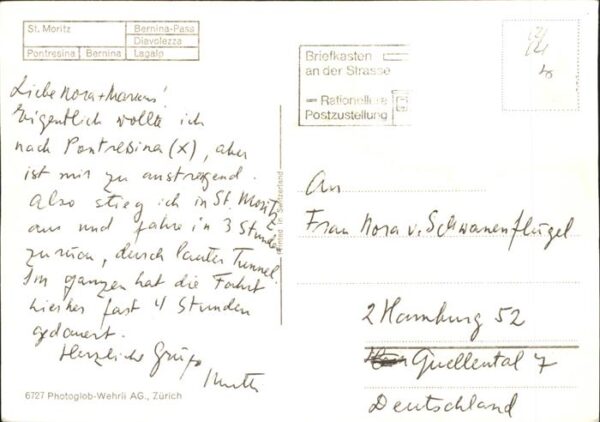 St. Moritz
Bernina-Pass
Diavolezza
Pontresina Bernina Lagalp
Liebe Nora + Marcus!
Eigentlich wollte ich
nach Pontresina (X), aber
ist mir zu anstregend.
Also stieg ich in St. Moritz
aus und fahre in 3 Stunden
zurück, durch lauter Tunnel.
Im ganzen hat die Fahrt
hierher fast 4 Stunden
gedauert.
Herzliche Grüße
6727 Photoglob-Wehrli AG., Zürich
Printed in Switzerland
Briefkasten
an der Strasse
— Rationellere
Postzustellung
An
Frau Nora v. Schwanenflügel
2 Hamburg 52
Quellental 7
Deutschland